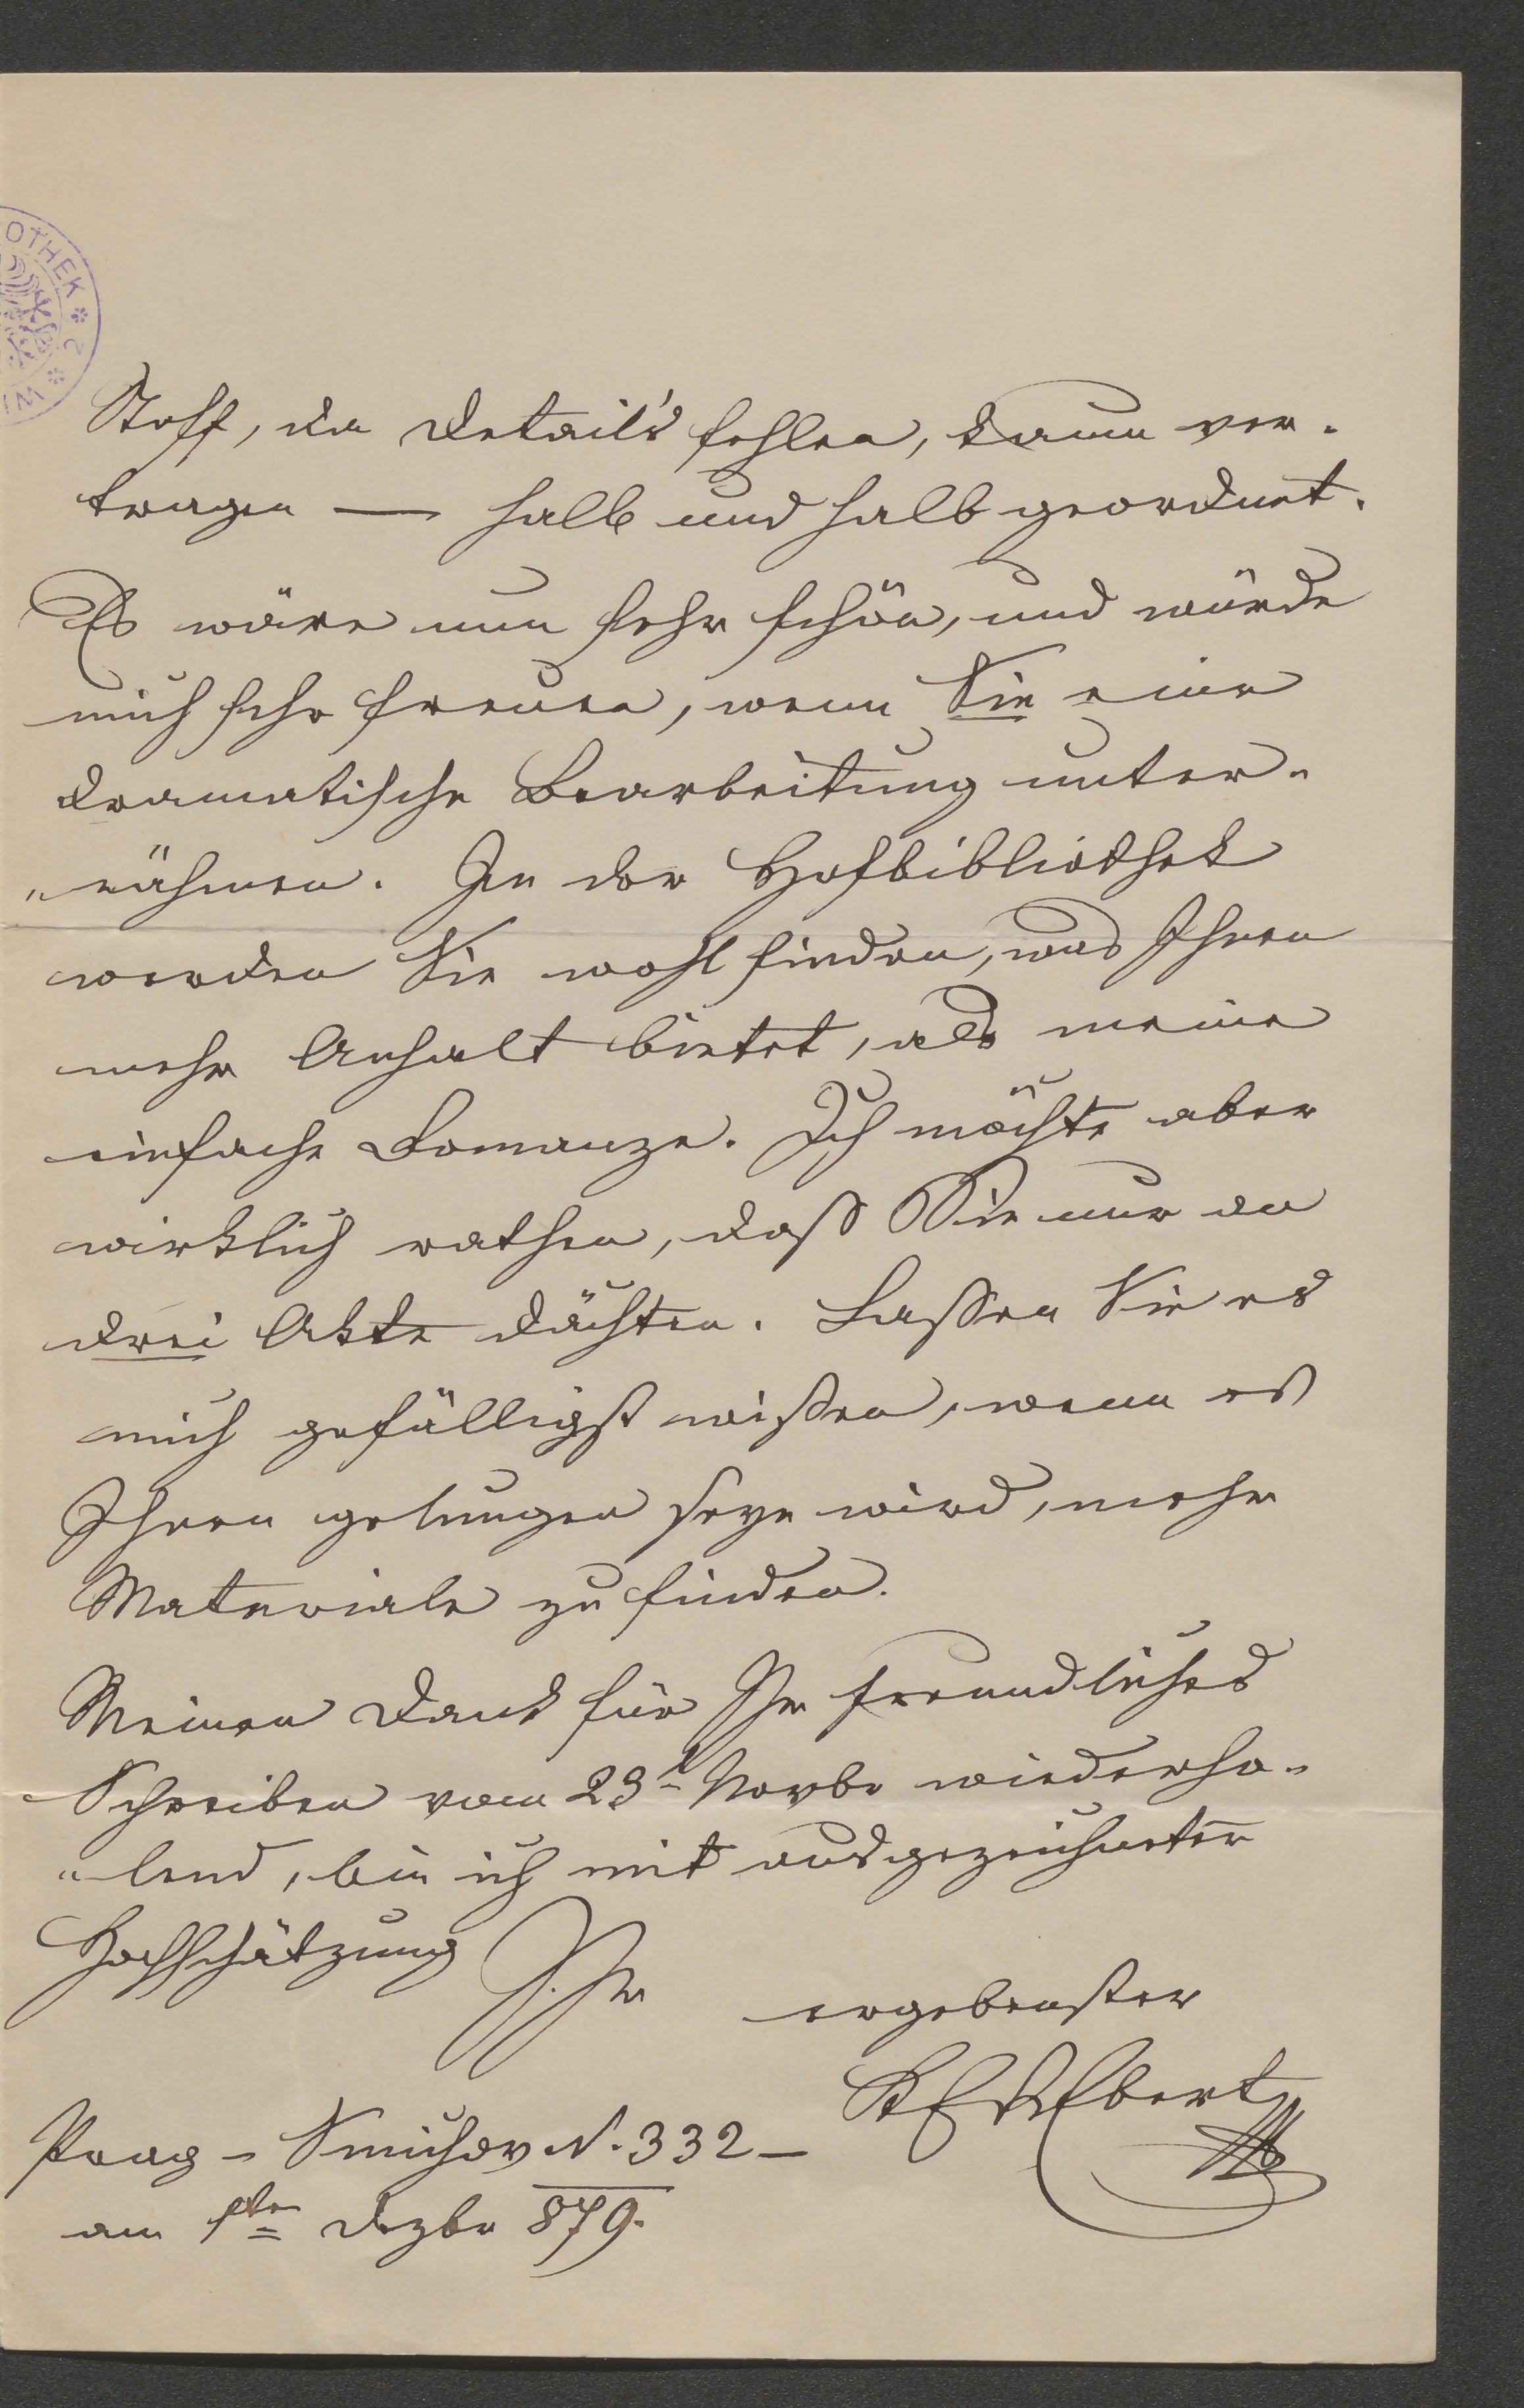 OTHEK * 2 * WI
Stoff, da Detail's fehlen, kaum ver-
tragen — halb und halb geordnet.
Es wäre nun sehr schön, und würde
mich sehr freuen, wenn Sie eine
dramatische Bearbeitung unter-
"nähmen. In der Hofbibliothek
werden Sie wohl finden, was Ihnen
mehr Anhalt bietet, als meine
einfache Romanze. Ich möchte aber
wirklich rathen, daß Sie nur an
drei Akte dächten. Lassen Sie es
mich gefälligst wißen, wenn es
Ihnen gelungen seyn wird, mehr
Materiale zu finden.
Meinen Dank für Ihr freundliches
Schreiben vom 23t Novbr wiederho-
"lend, bin ich mit ausgezeichneter
Hochschätzung Ihr
ergebenster
KEREbert
Prag - Smichov N. 332 —
am 1ten Dezbr 879.